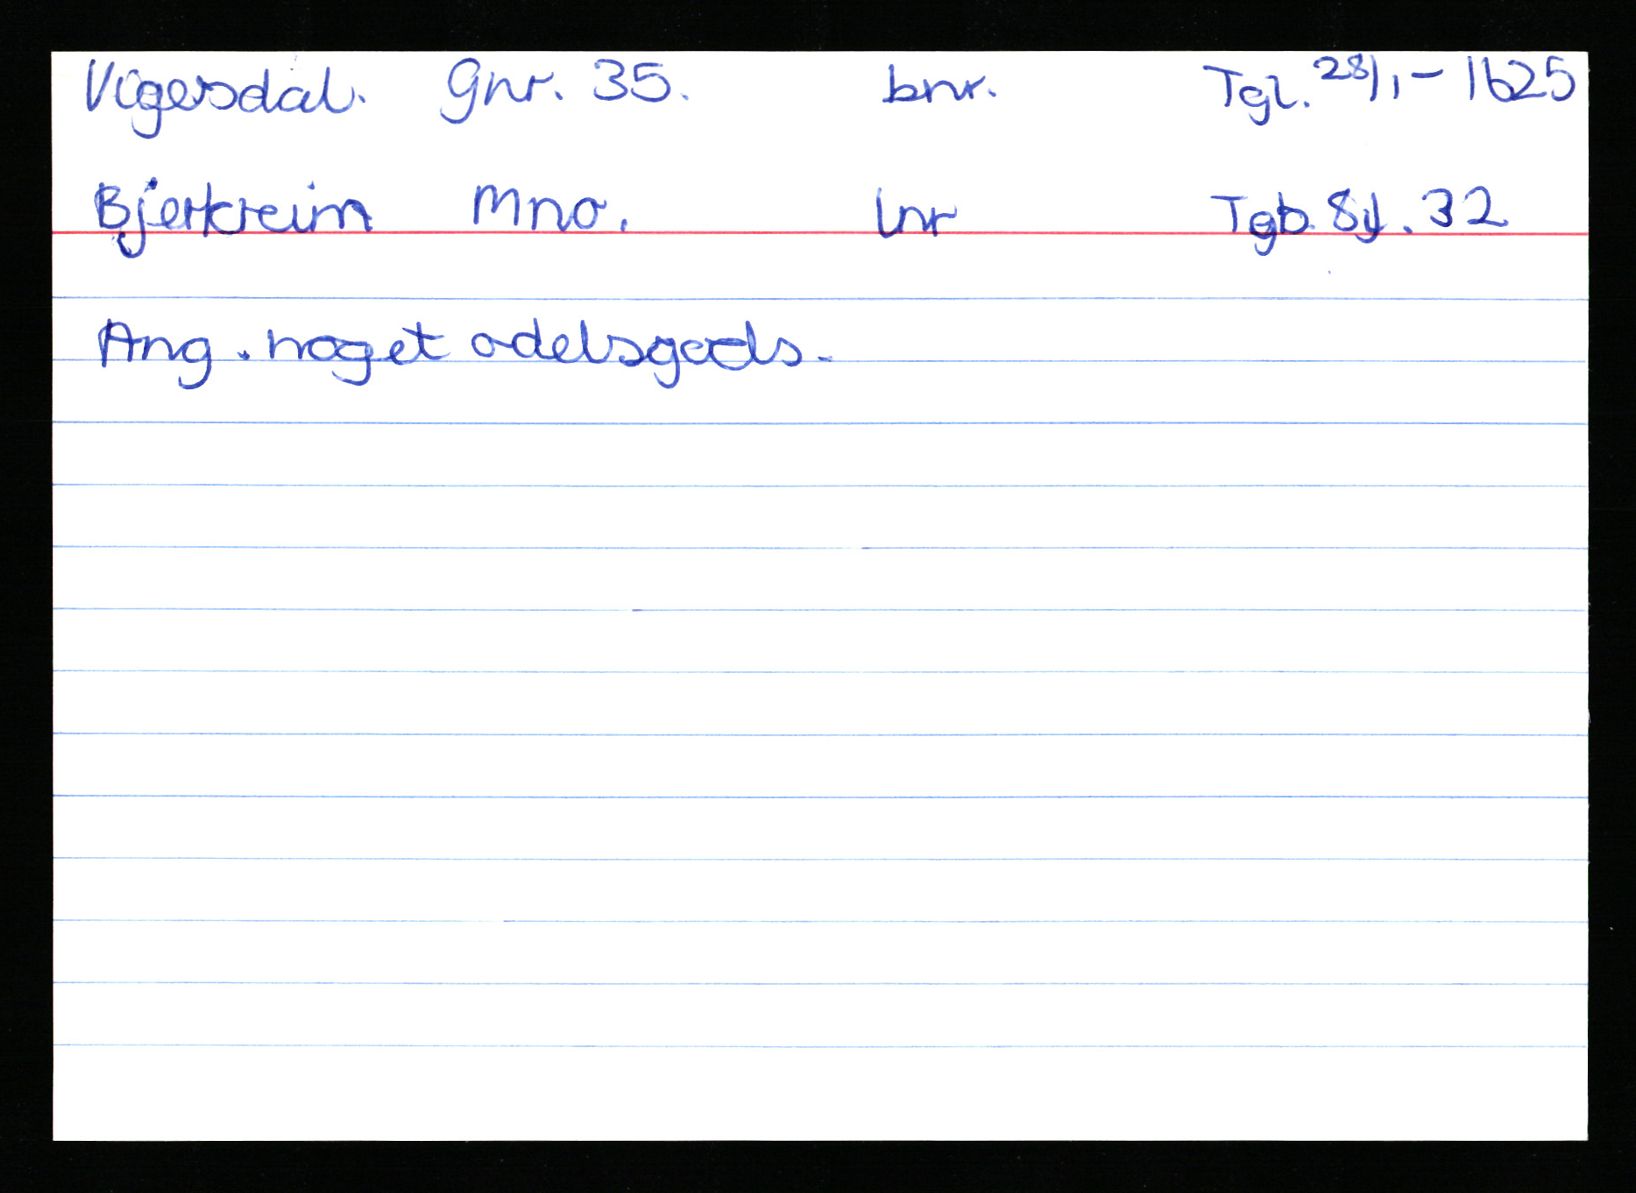 Vigesdal. Gnr. 35. bnr. Tgl. 28/1 - 1625
Bjerkreim Mno. lnr Tgb. 32
Ang. noget odelsgods.